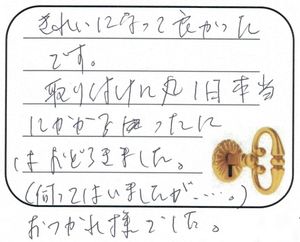 きれいになって良かった
です。
取りはけに丸1日本当
にかかるったに
はおどろきました。
(伺ってはいましたが……。)
おつかれ様でした。